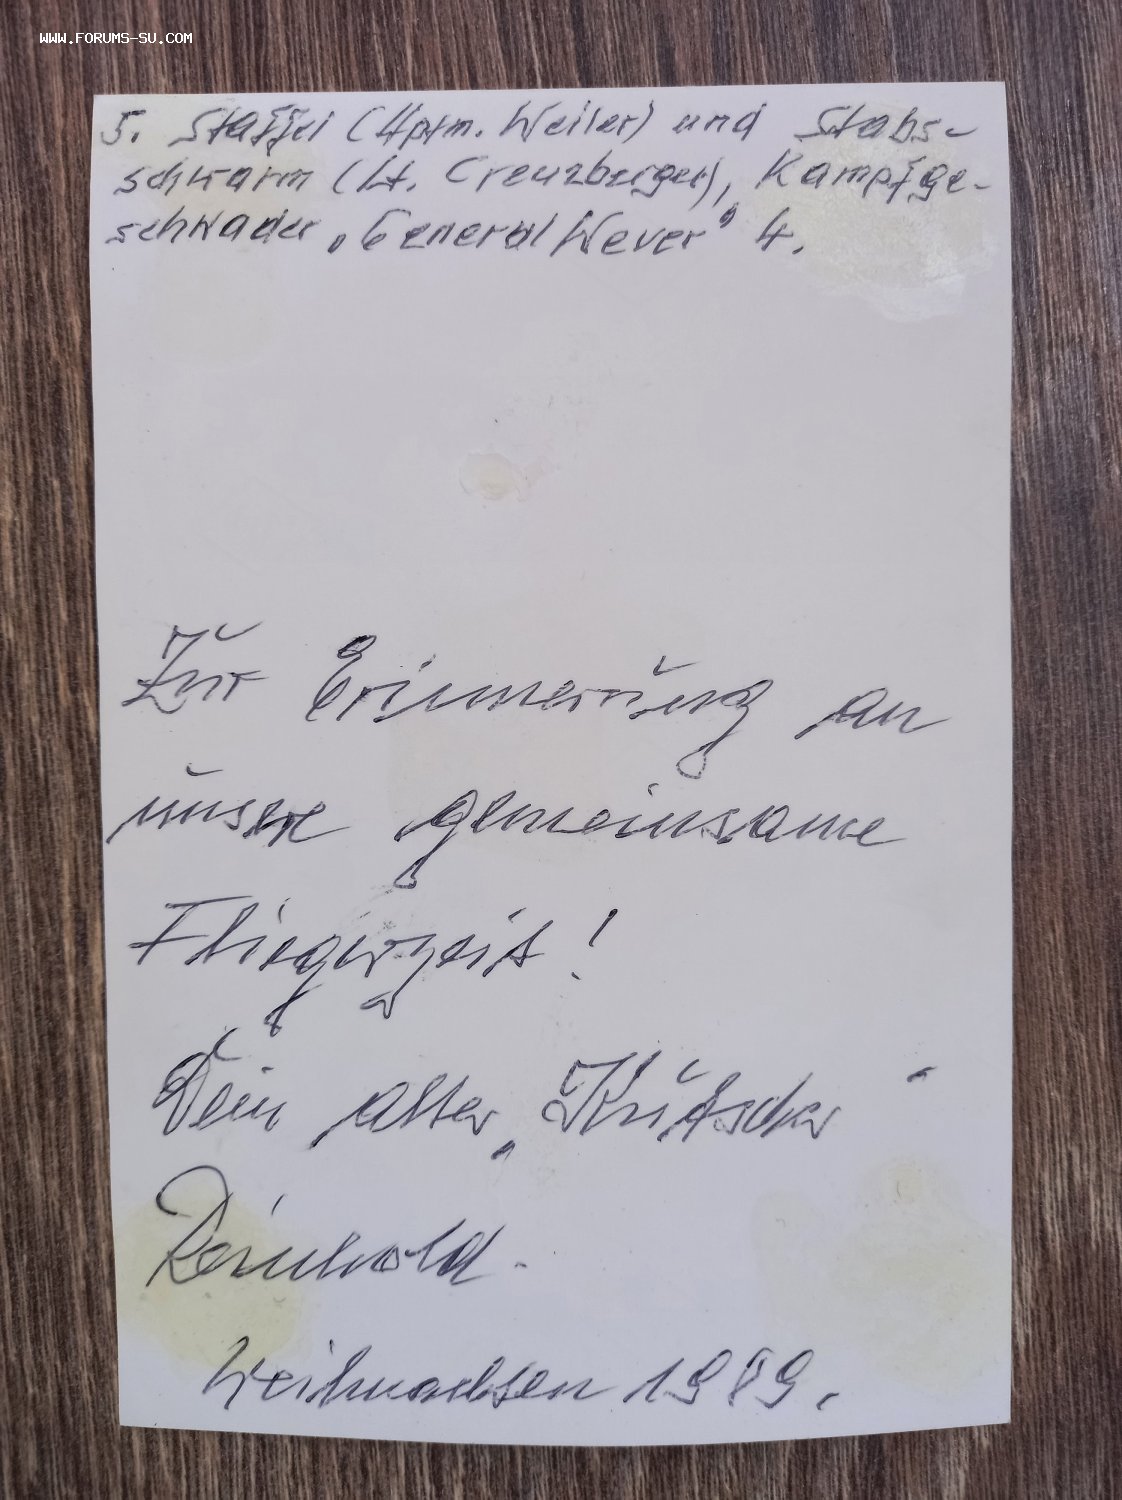 WWW.FORUMS-SU.COM
5. Staffel (Hptm. Weiler) und Stabs-
schwarm (Lt. Creuzberger), Kampfge-
schwader „General Wever" 4.
Zur Erinnerung an
unsere gemeinsame
Fliegerzeit!
Dein alter „Kutscher"
Reinhold.
Weihnachten 1989.